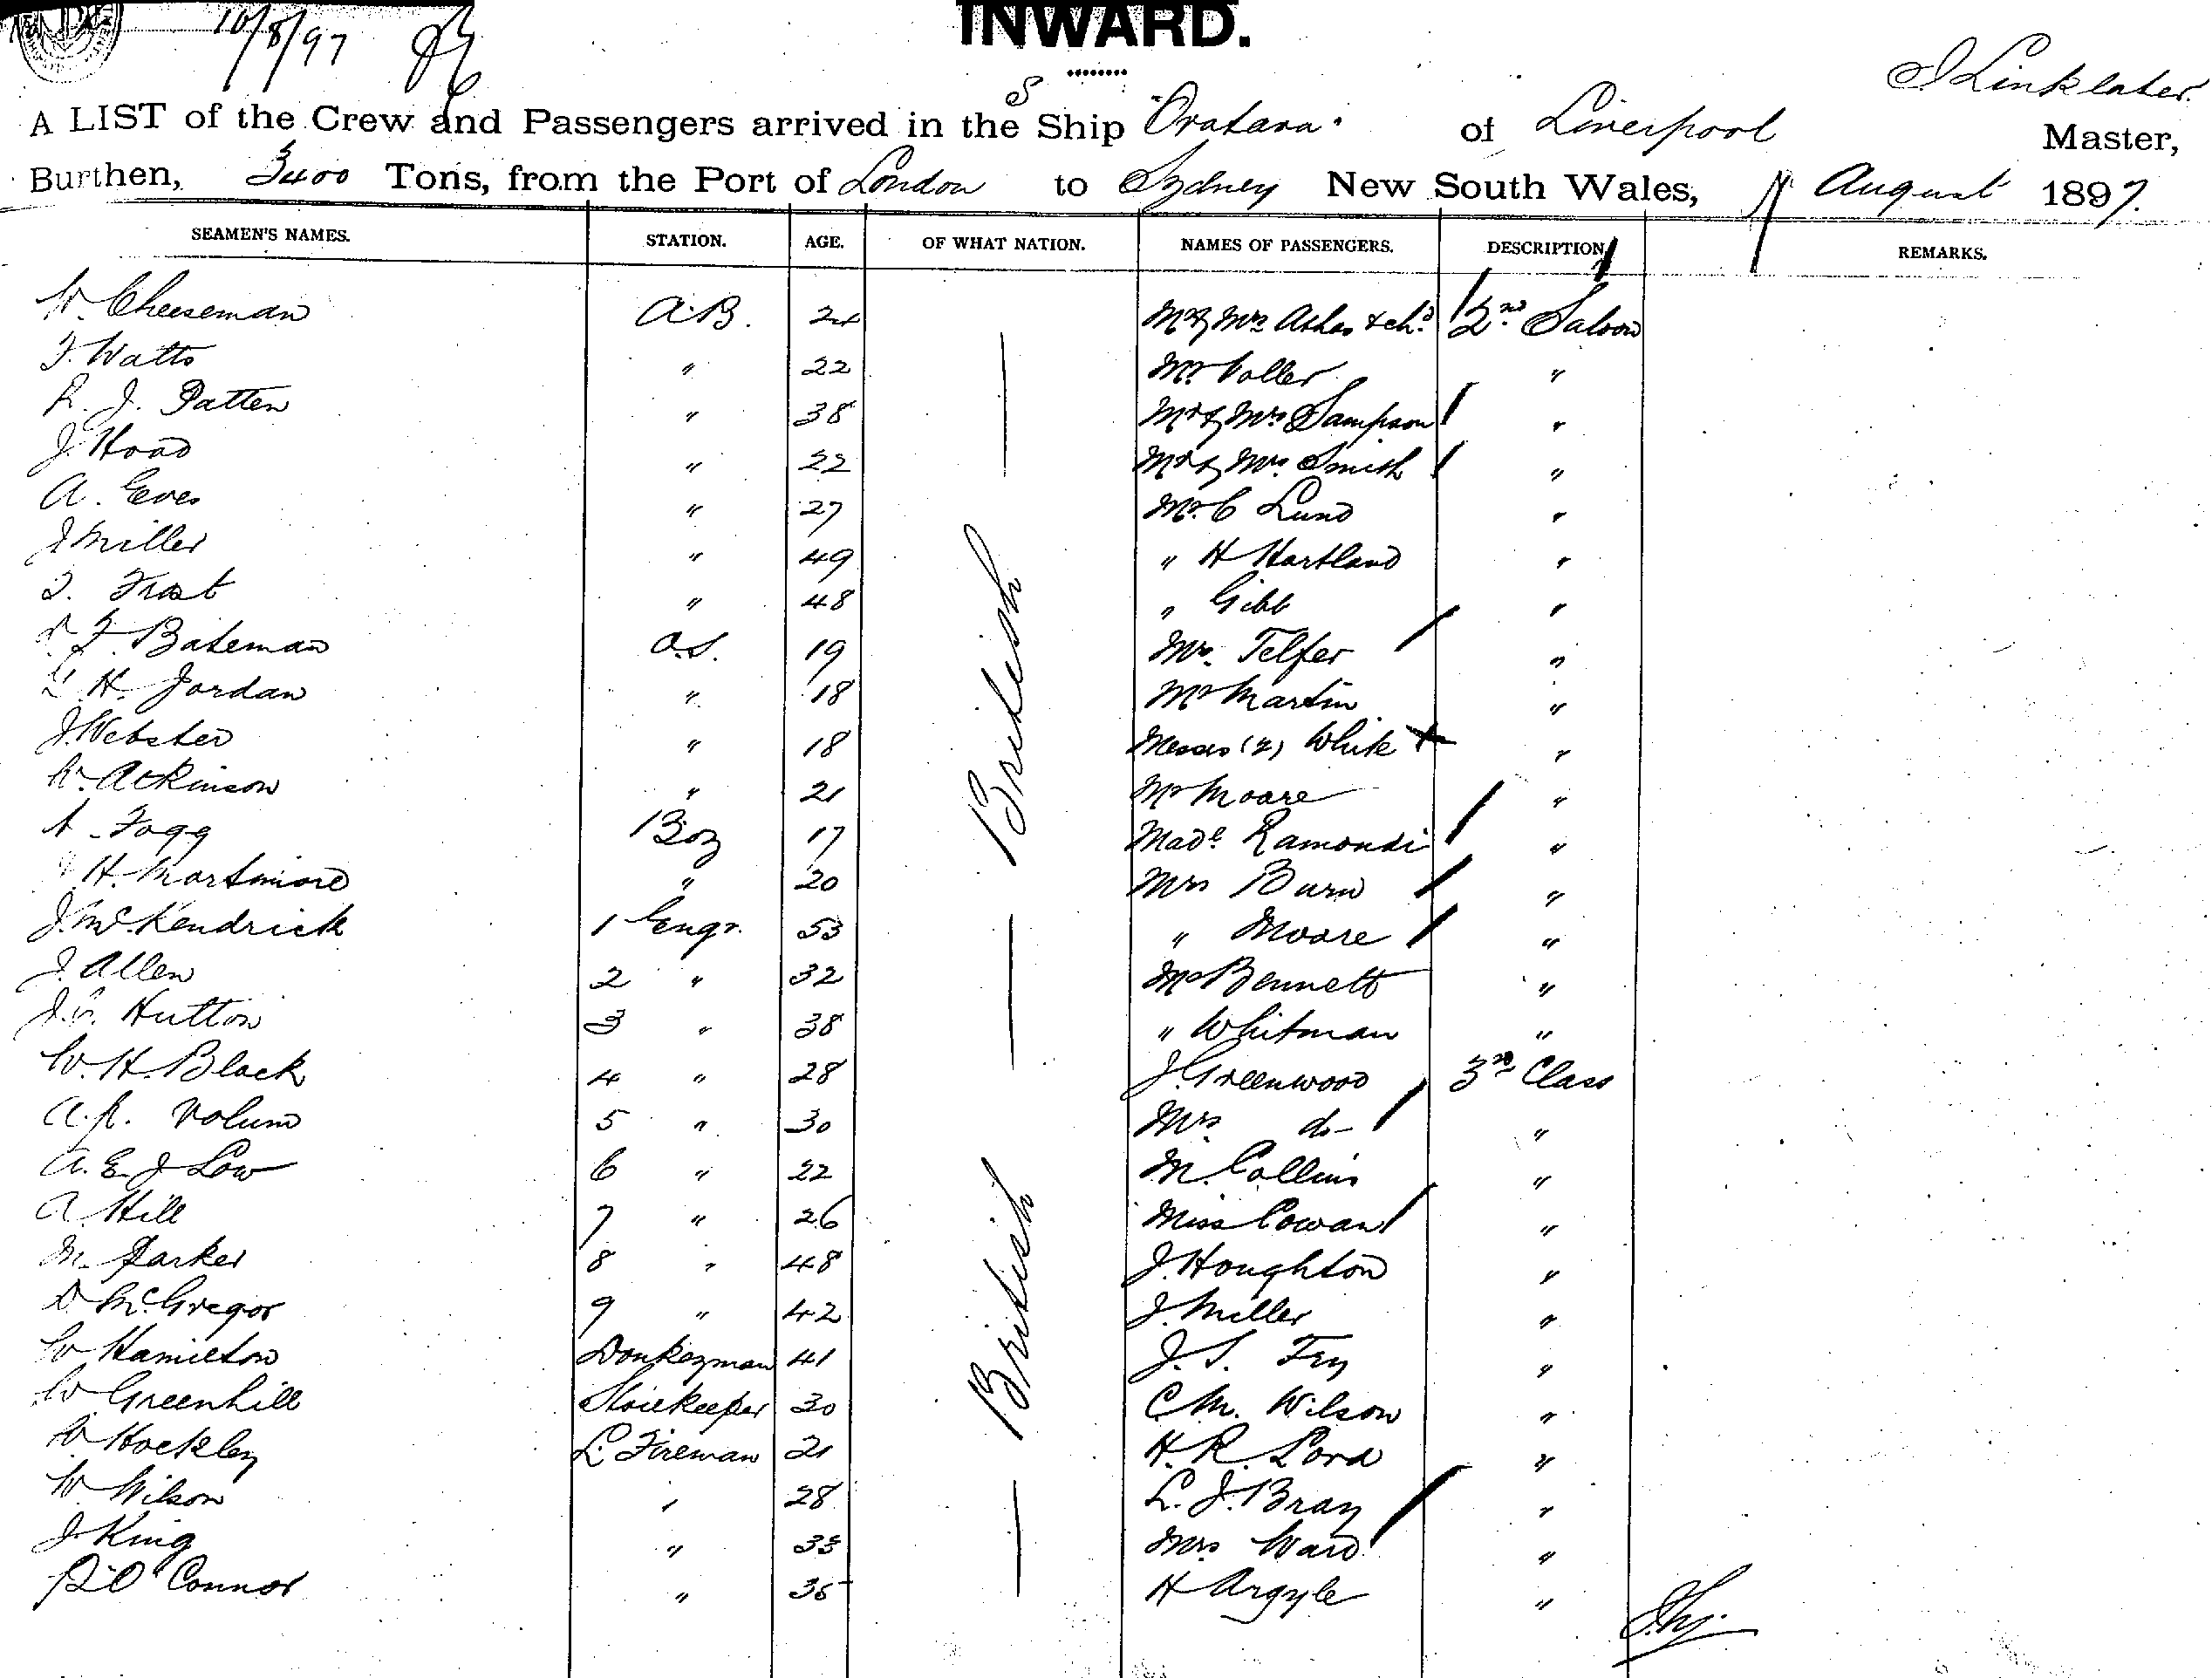 10/8/97
INWARD.
A LIST of the Crew and Passengers arrived in the S Ship "Orotava" of Liverpool J Linklater Master,
Burthen, 3400 Tons, from the Port of London to Sydney New South Wales, August 1897.
SEAMEN'S NAMES. STATION. AGE. OF WHAT NATION. NAMES OF PASSENGERS. DESCRIPTION. REMARKS.
W. Cheeseman A.B. 24 Mr & Mrs Ashes & chd 2nd Saloon
T. Watts " 22 Mr Voller "
R. J. Patten " 38 Mr & Mrs Sampson "
J. Hoad " 22 Mr & Mrs Smith "
A. Eves " 27 Mr C Lund "
J Miller " 49 " H Hartland "
T. Frost " 48 " Gibb "
F. Bateman O.S. 19 Mrs. Telfer "
H. Jordan " 18 Mr Martin "
J. Webster " 18 Messrs (2) White "
W. Atkinson " 21 Mr Moore "
A. Fogg Boy 17 Made Ramondi "
H. Mortimore " 20 Mrs Burn "
J. McKendrick 1 Engr. 53 " Moore "
J. Allen 2 " 32 Mr Bennett "
J. Hutton 3 " 38 " Whitman "
W. H. Black 4 " 28 J. Greenwood 3rd Class
A. R. Volum 5 " 30 Mrs do "
A. E. J Low 6 " 22 M. Collins "
A. Hill 7 " 26 Miss Cowan "
M. Parker 8 " 48 J. Houghton "
D McGregor 9 " 42 J. Miller "
W Hamilton Donkeyman 41 J. S. Fry "
W Greenhill Storekeeper 30 C M. Wilson "
W Hockley L. Fireman 21 H. R. Lord "
W Wilson " 28 L. J. Bray "
J. King " 33 Mrs Ward "
P O'Connor " 35 H Argyle "
British
British